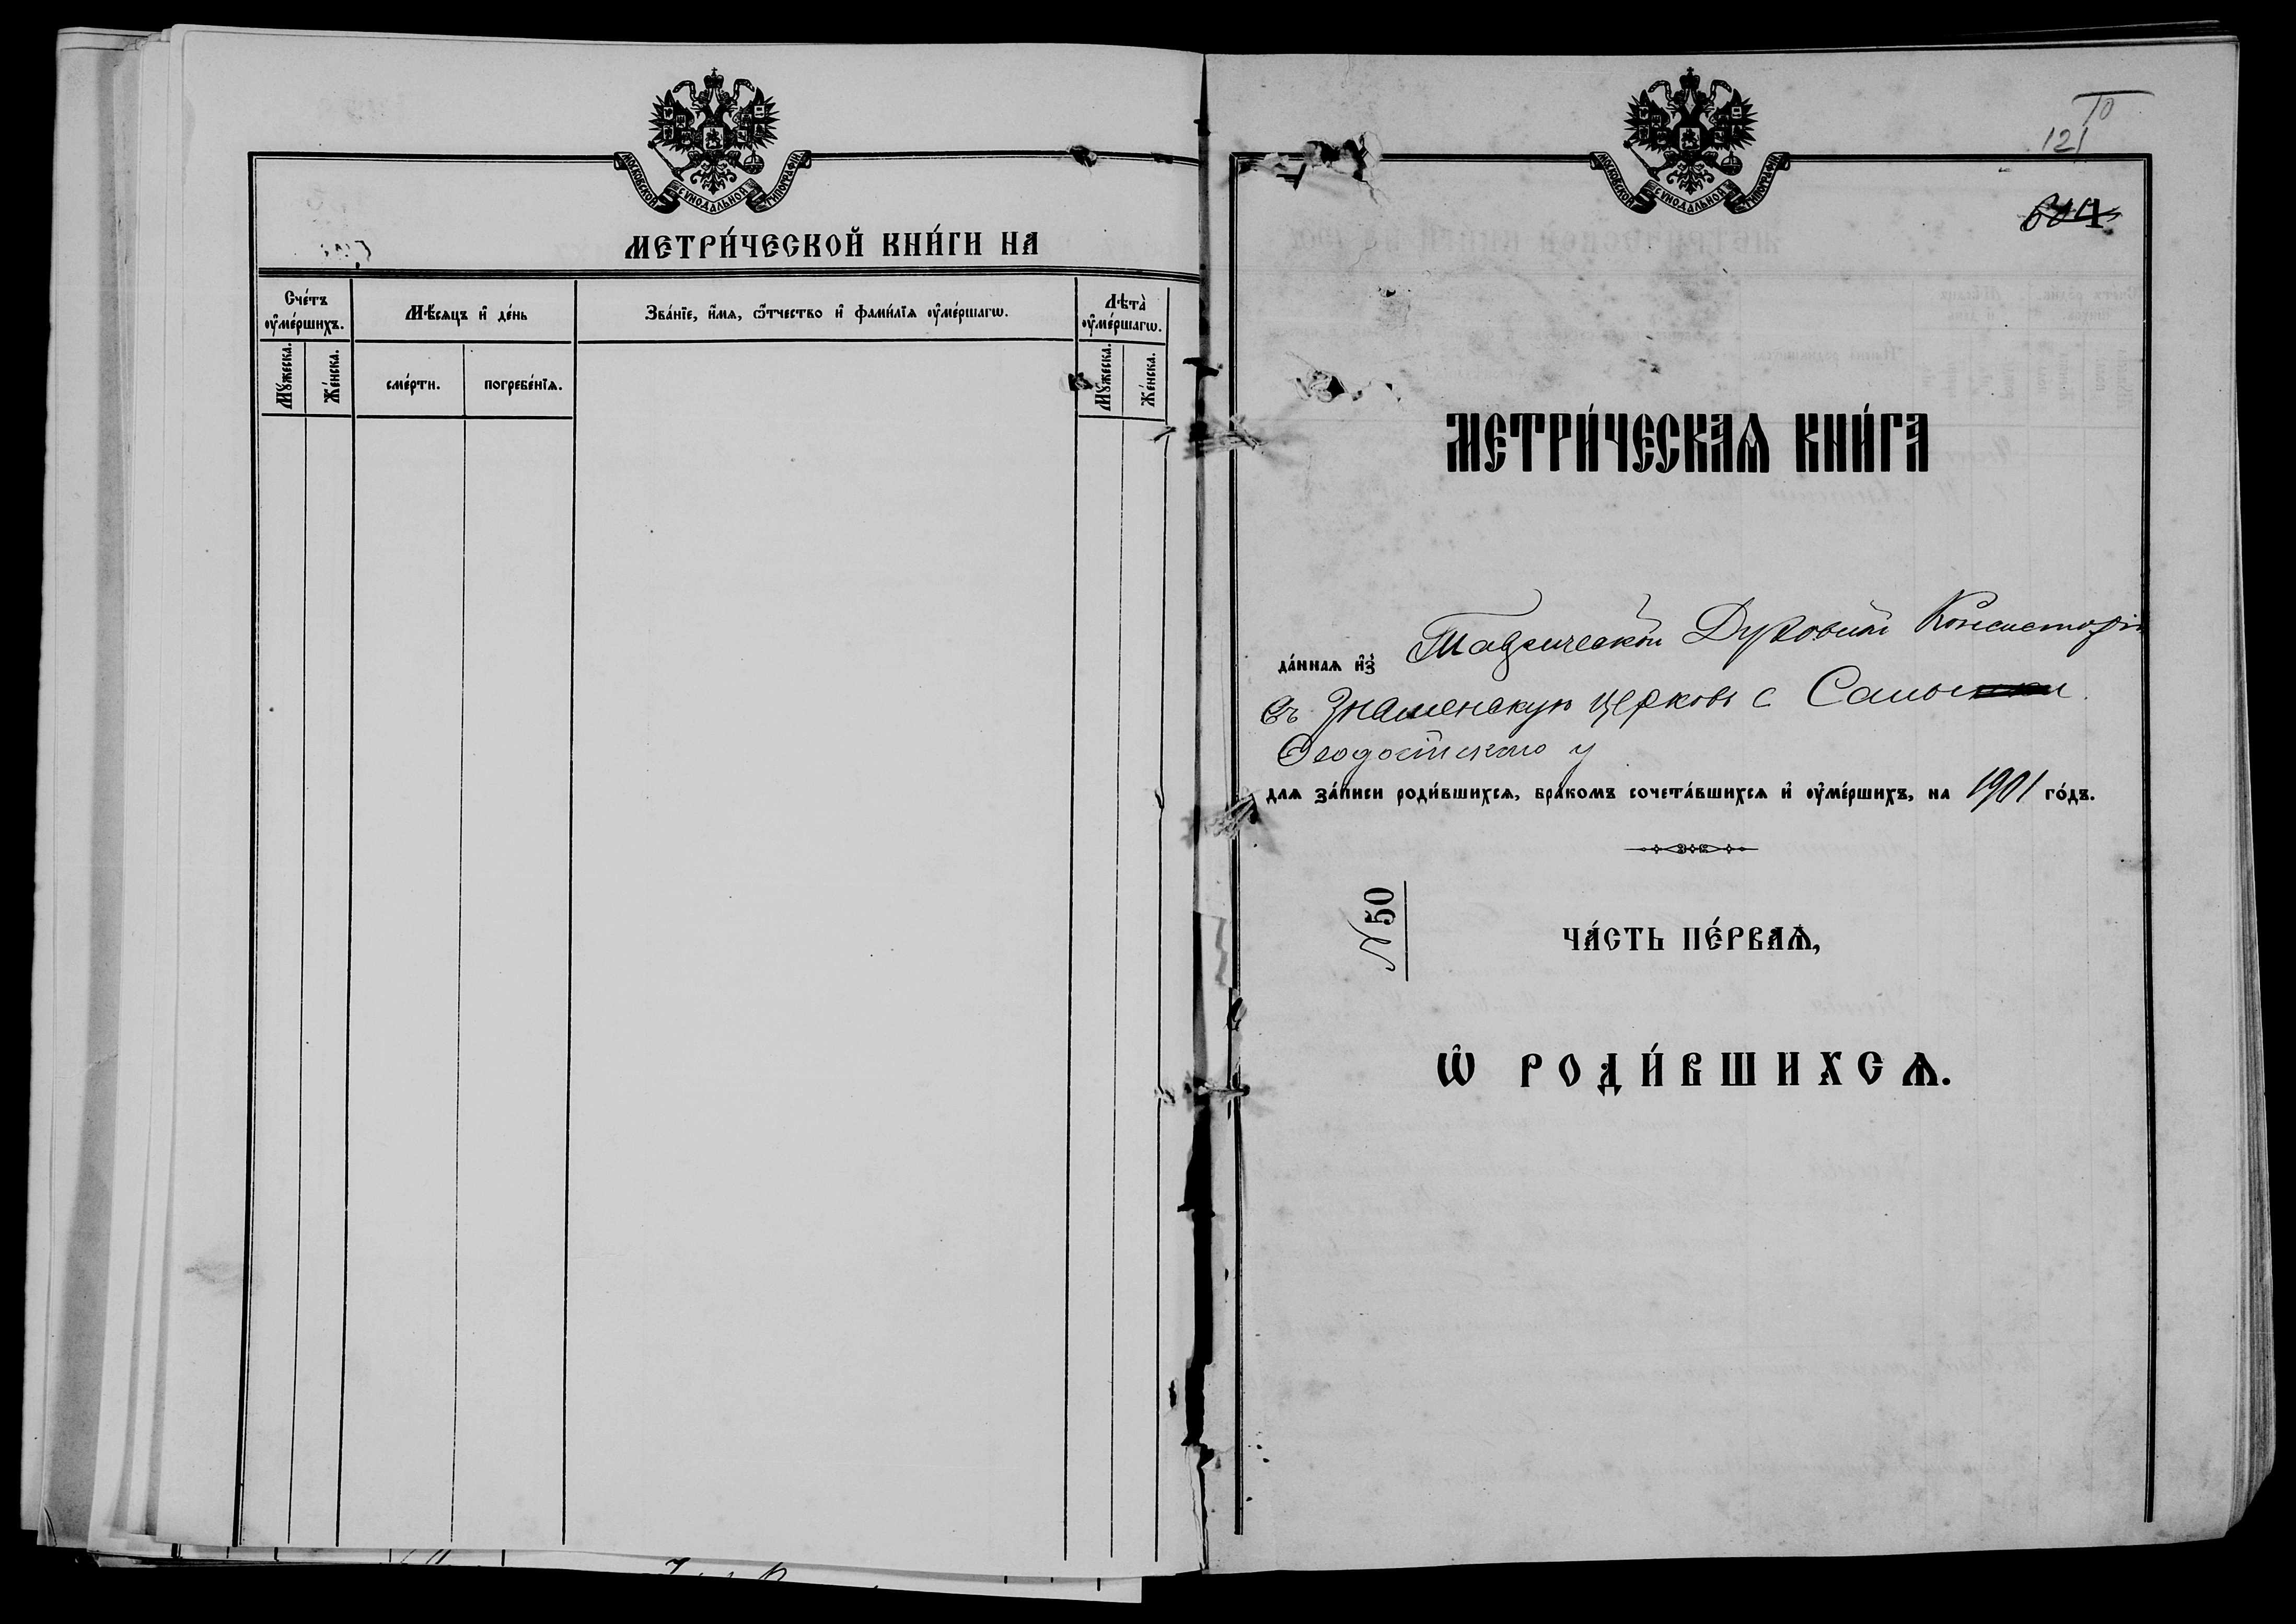 МОСКОВСКОЙ СѴНОДАЛЬНОЙ ТИПОГРАФІИ
МЕТРИ́ЧЕСКОЙ КНИ́ГИ НА
Сче́тъ ᲂу҆ме́ршихъ.
Мѣ́сяцъ и҆ де́нь
Зва́нїе, и҆́мѧ, ѻ҆́тчество и҆ фами́лїѧ ᲂу҆ме́ршагѡ.
Лѣ́та ᲂу҆ме́ршагѡ.
Мꙋ́жеска.
Же́нска.
сме́рти.
погребе́нїѧ.
Мꙋ́жеска.
Же́нска.
МОСКОВСКОЙ СѴНОДАЛЬНОЙ ТИПОГРАФІИ
121
МЕТРИ́ЧЕСКАѦ КНИ́ГА
да́ннаѧ и҆з̾ Таврической Духовной Консисторіи
въ Знаменскую церковь с
Ѳеодосійскаго у
для за́писи роди́вшихсѧ, бра́комъ сочета́вшихсѧ и҆ ᲂу҆ме́ршихъ, на 1901 го́дъ.
№ 50
ЧА́СТЬ ПЕ́РВАѦ,
Ѡ҆ РОДИ́ВШИХСѦ.